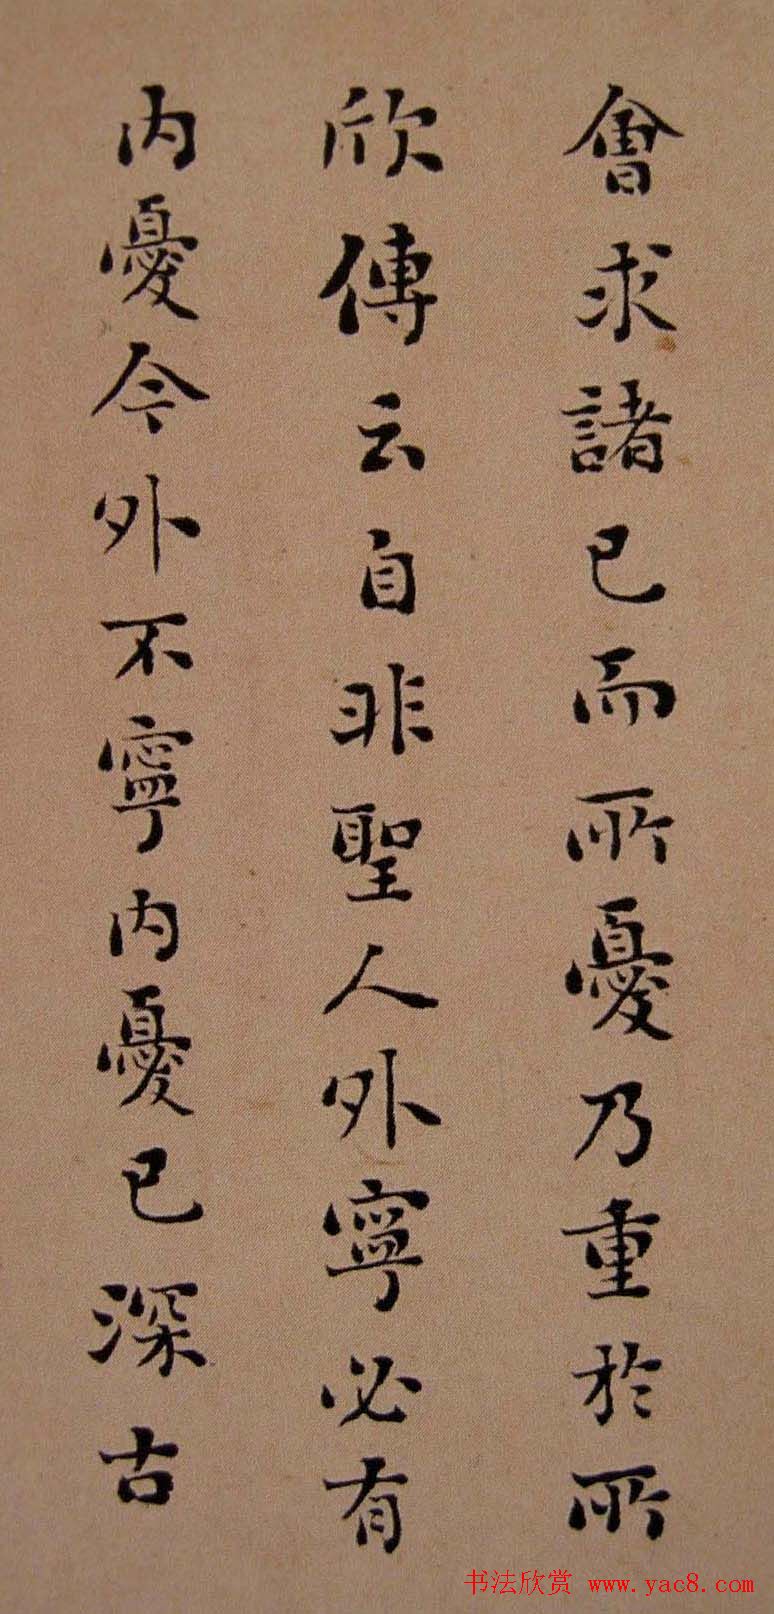 會求諸已而所憂乃重於所
欣傳云自非聖人外寧必有
内憂今外不寧内憂已深古
书法欣赏 www.yac8.com